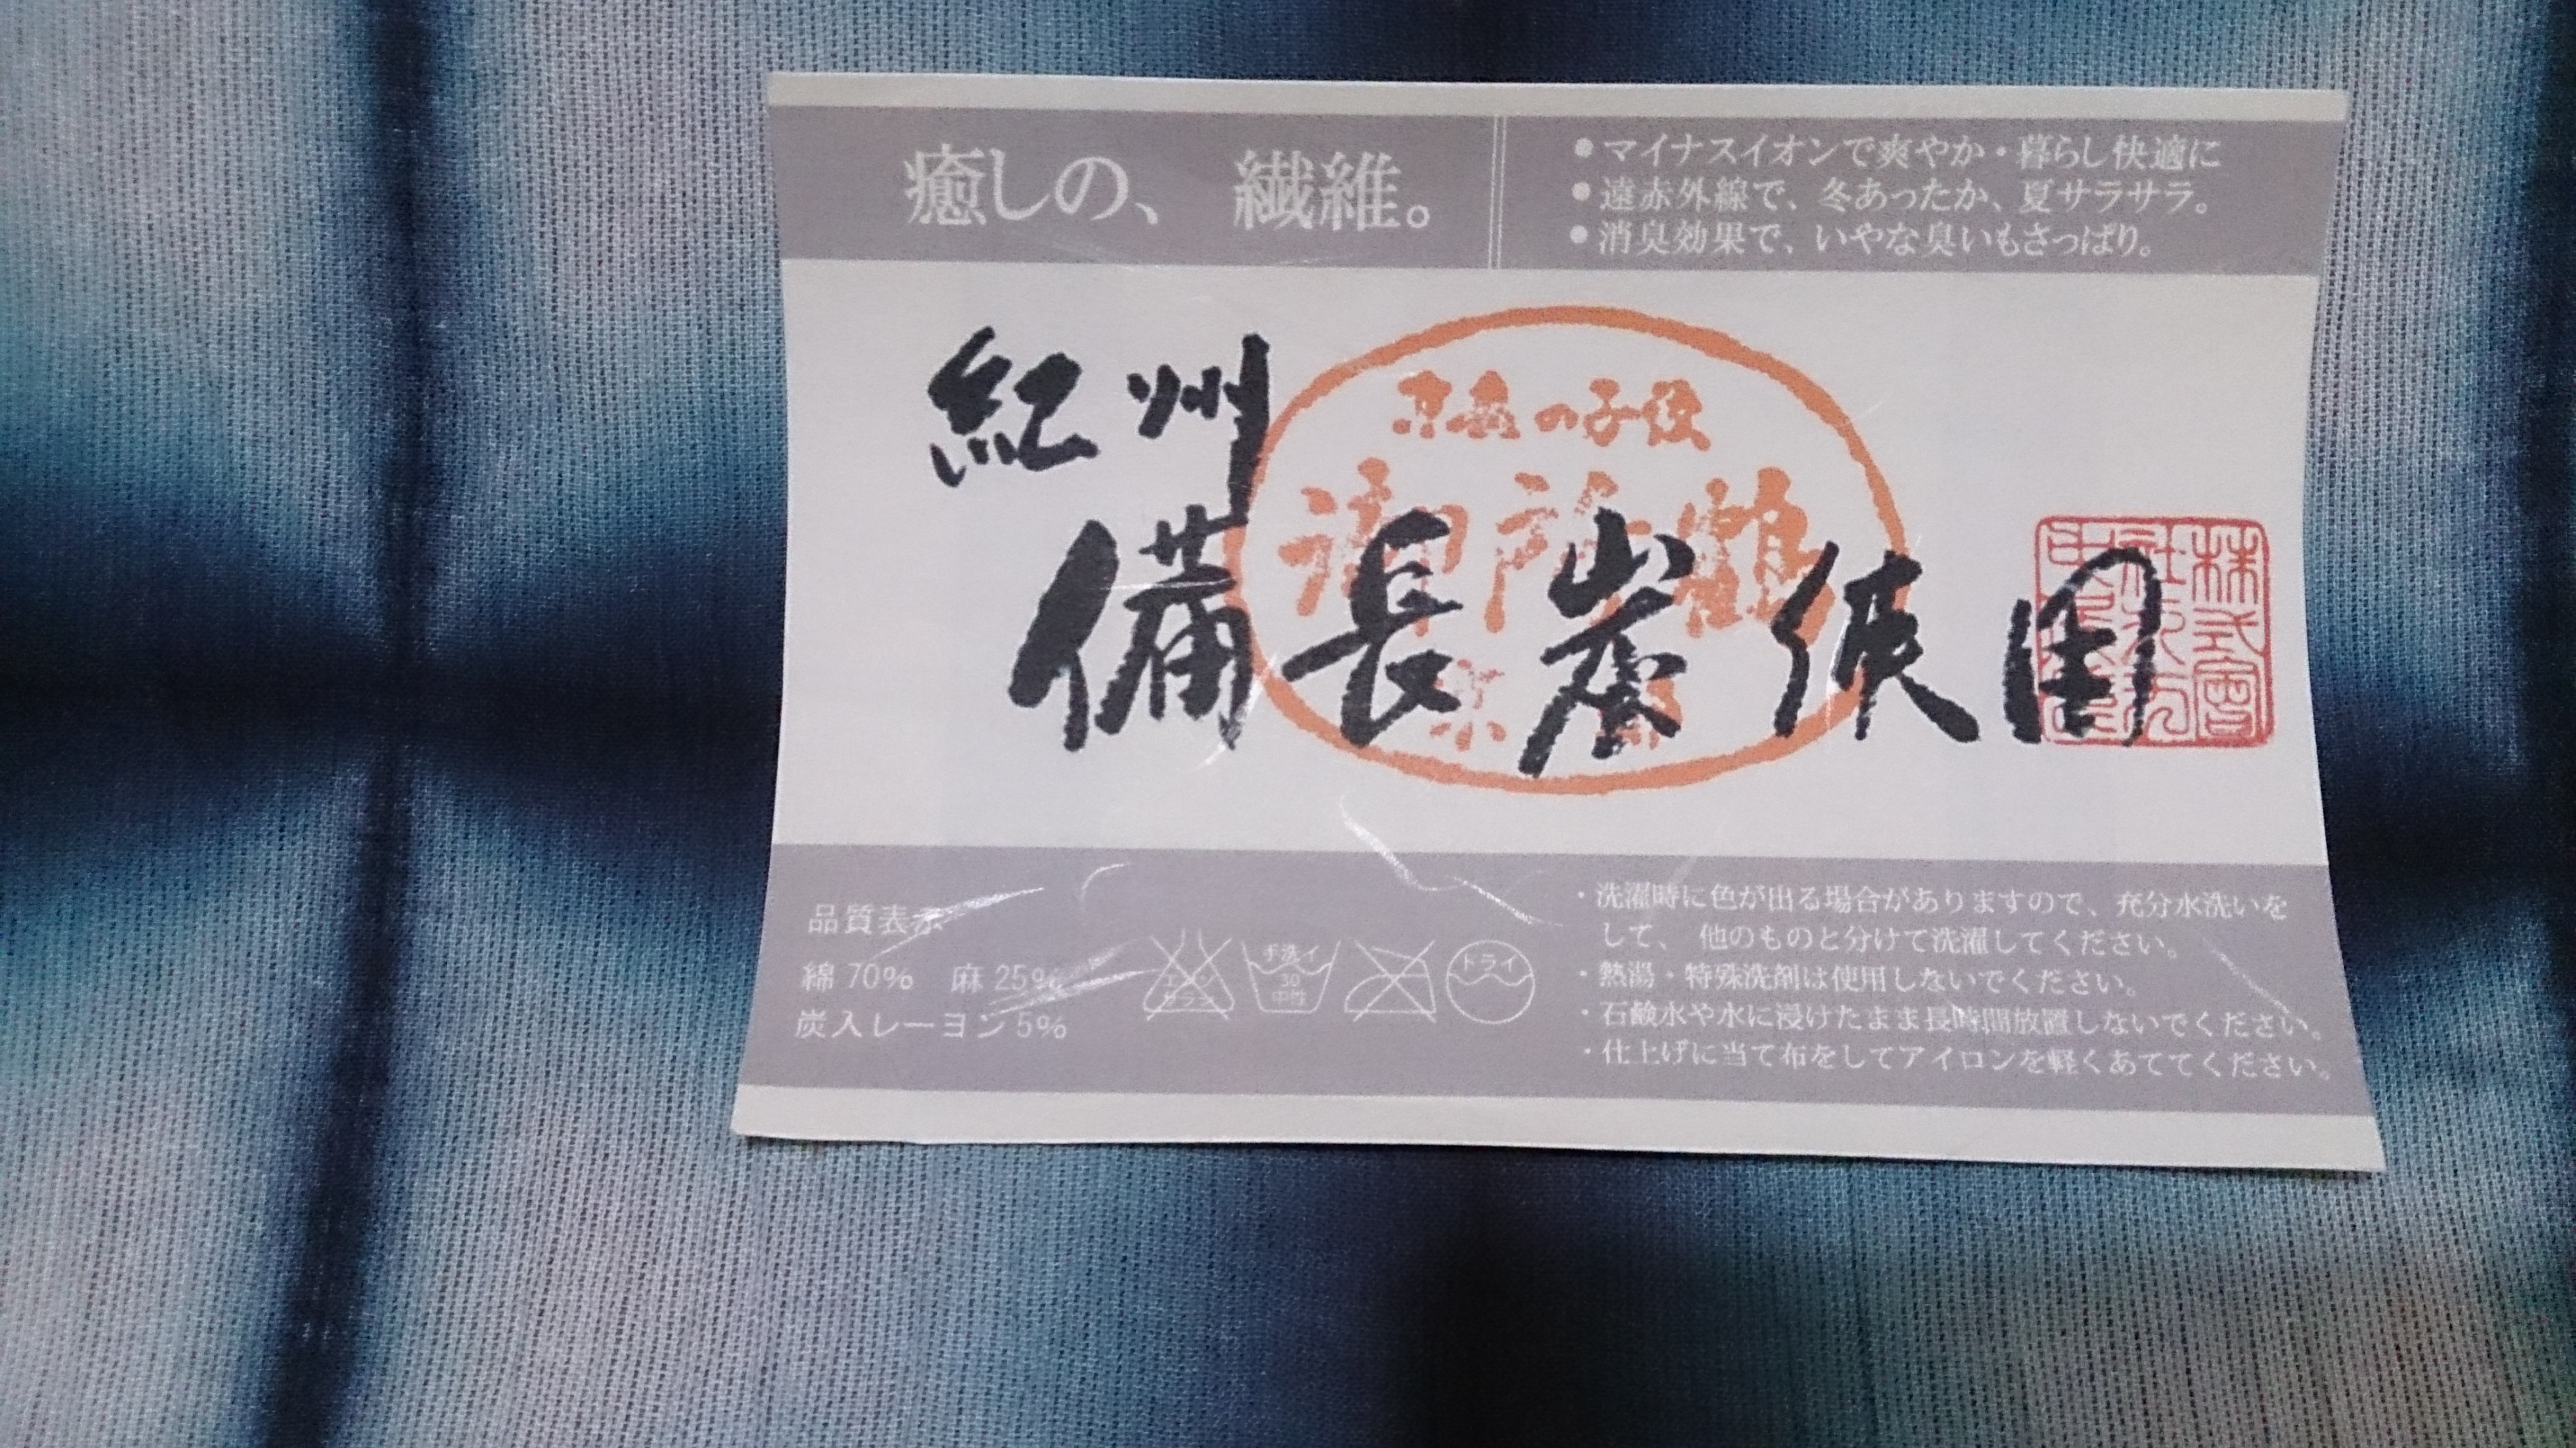 癒しの、繊維。
●マイナスイオンで爽やか・暮らし快適に
●遠赤外線で、冬あったか、夏サラサラ。
●消臭効果で、いやな臭いもさっぱり。
紀州
備長炭使用
の子供
御所鶴
京都
株式會
社
品質表示
綿 70% 麻 25%
炭入レーヨン 5%
エンソサラシ
手洗イ
30
中性
ドライ
・洗濯時に色が出る場合がありますので、充分水洗いを
して、他のものと分けて洗濯してください。
・熱湯・特殊洗剤は使用しないでください。
・石鹸水や水に浸けたまま長時間放置しないでください。
・仕上げに当て布をしてアイロンを軽くあててください。